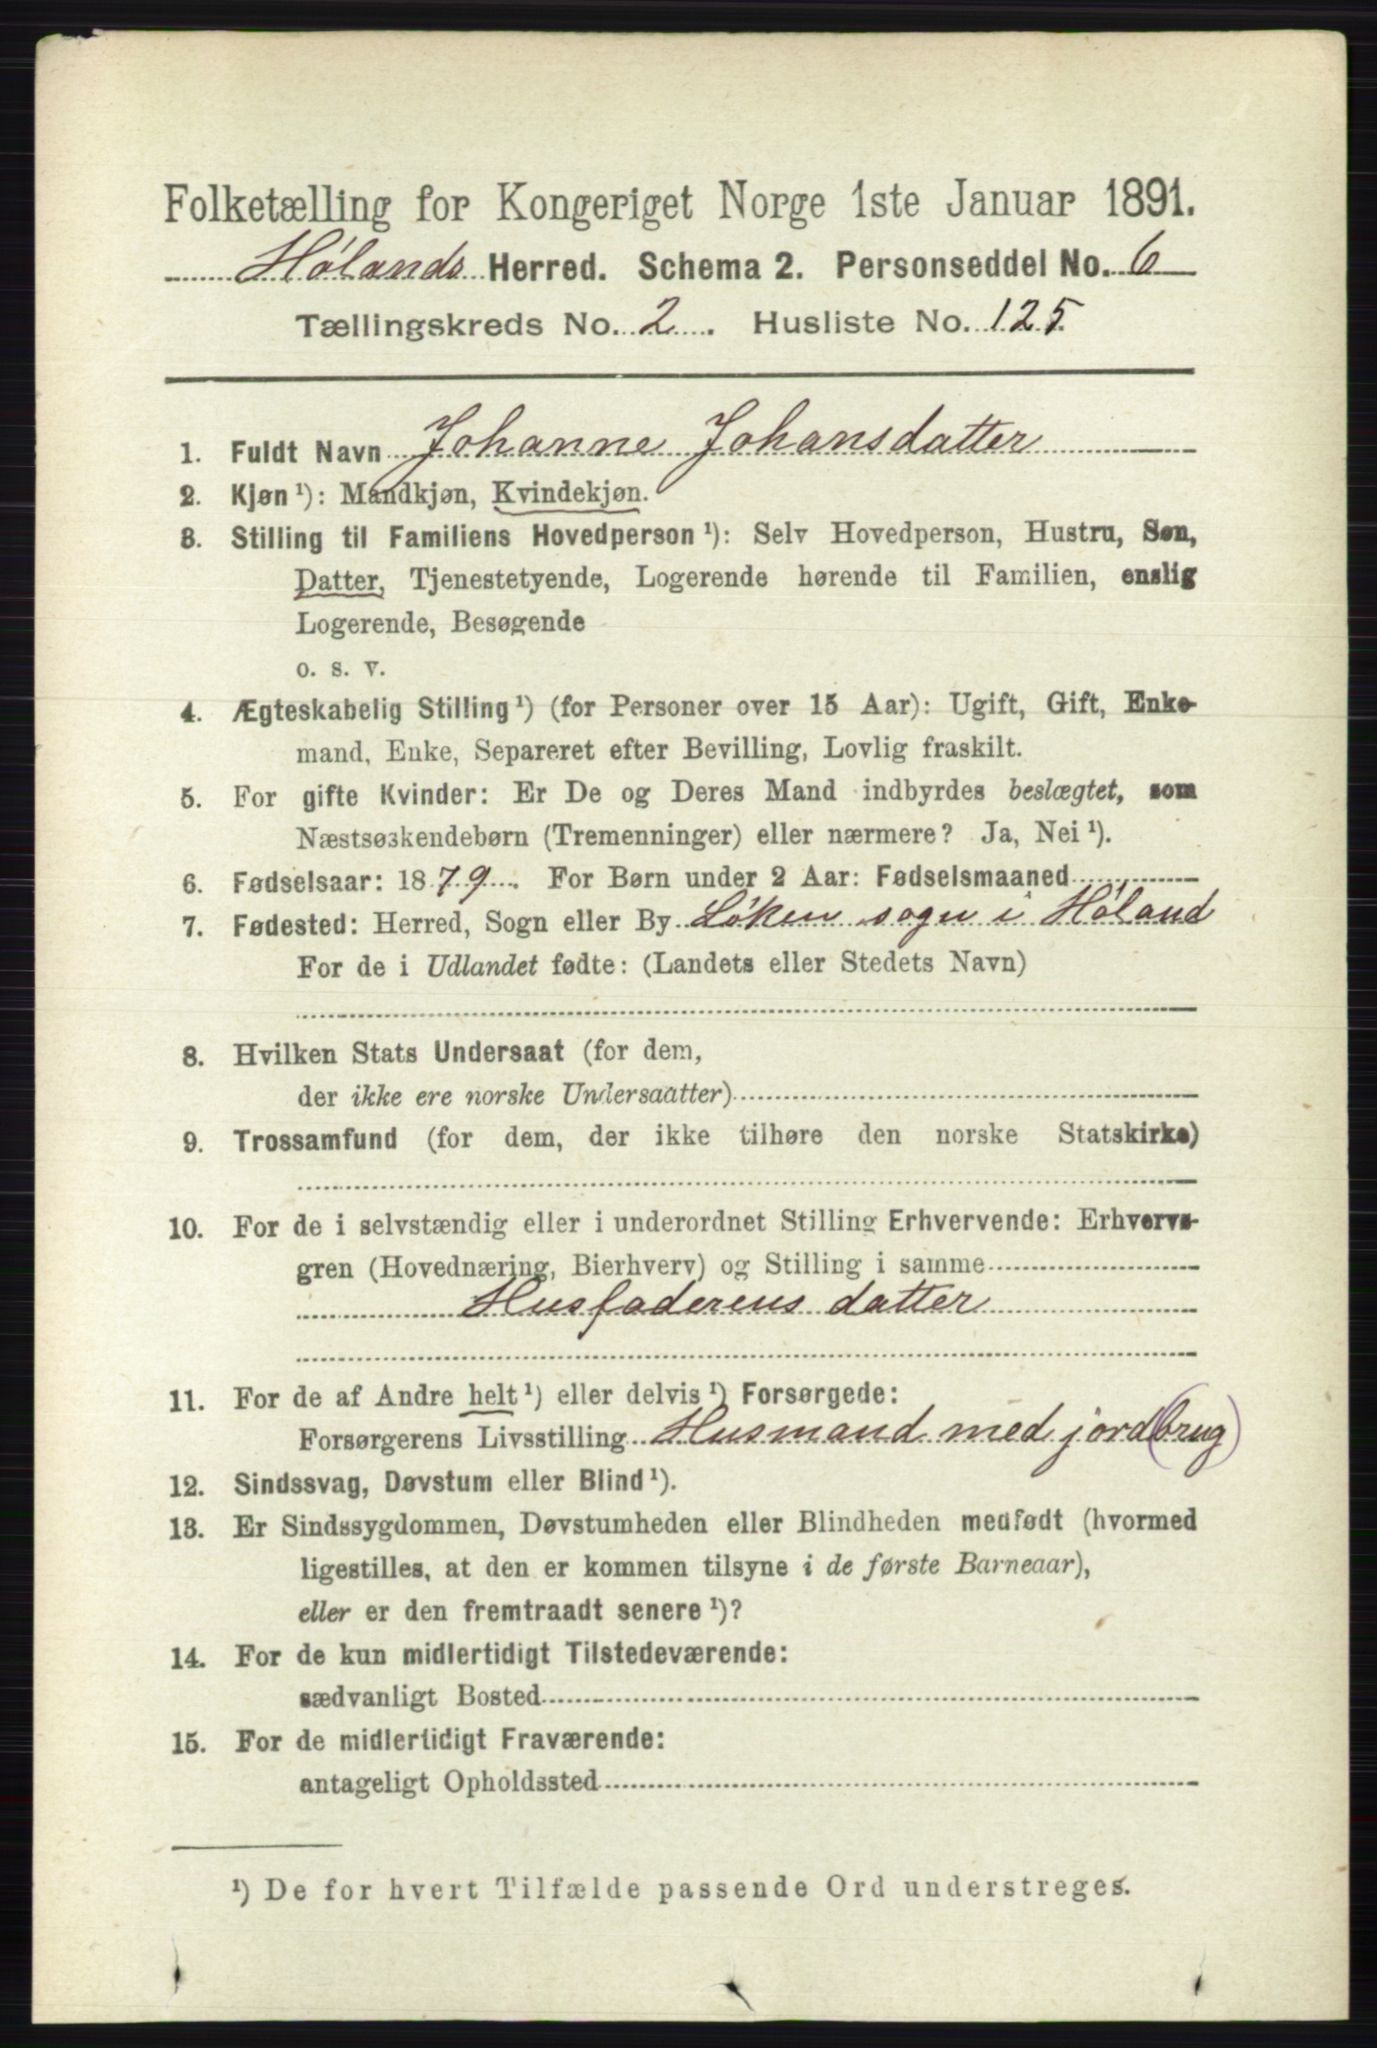 Folketælling for Kongeriget Norge 1ste Januar 1891.
Hølands Herred. Schema 2. Personseddel No. 6
Tællingskreds No. 2. Husliste No. 125.
1. Fuldt Navn Johanne Johansdatter
2. Kjøn ¹): Mandkjøn, Kvindekjøn.
3. Stilling til Familiens Hovedperson ¹): Selv Hovedperson, Hustru, Søn,
Datter, Tjenestetyende, Logerende hørende til Familien, enslig
Logerende, Besøgende
o. s. v.
4. Ægteskabelig Stilling ¹) (for Personer over 15 Aar): Ugift, Gift, Enke-
mand, Enke, Separeret efter Bevilling, Lovlig fraskilt.
5. For gifte Kvinder: Er De og Deres Mand indbyrdes beslægtet, som
Næstsøskendebørn (Tremenninger) eller nærmere? Ja, Nei ¹).
6. Fødselsaar: 1879. For Børn under 2 Aar: Fødselsmaaned
7. Fødested: Herred, Sogn eller By Løken sogn i Høland
For de i Udlandet fødte: (Landets eller Stedets Navn)
8. Hvilken Stats Undersaat (for dem,
der ikke ere norske Undersaatter)
9. Trossamfund (for dem, der ikke tilhøre den norske Statskirke)
10. For de i selvstændig eller i underordnet Stilling Erhvervende: Erhvervs-
gren (Hovednæring, Bierhverv) og Stilling i samme
Husfaderens datter
11. For de af Andre helt ¹) eller delvis ¹) Forsørgede:
Forsørgerens Livsstilling Husmand med jord(brug)
12. Sindssvag, Døvstum eller Blind ¹).
13. Er Sindssygdommen, Døvstumheden eller Blindheden medfødt (hvormed
ligestilles, at den er kommen tilsyne i de første Barneaar),
eller er den fremtraadt senere ¹)?
14. For de kun midlertidigt Tilstedeværende:
sædvanligt Bosted
15. For de midlertidigt Fraværende:
antageligt Opholdssted
¹) De for hvert Tilfælde passende Ord understreges.